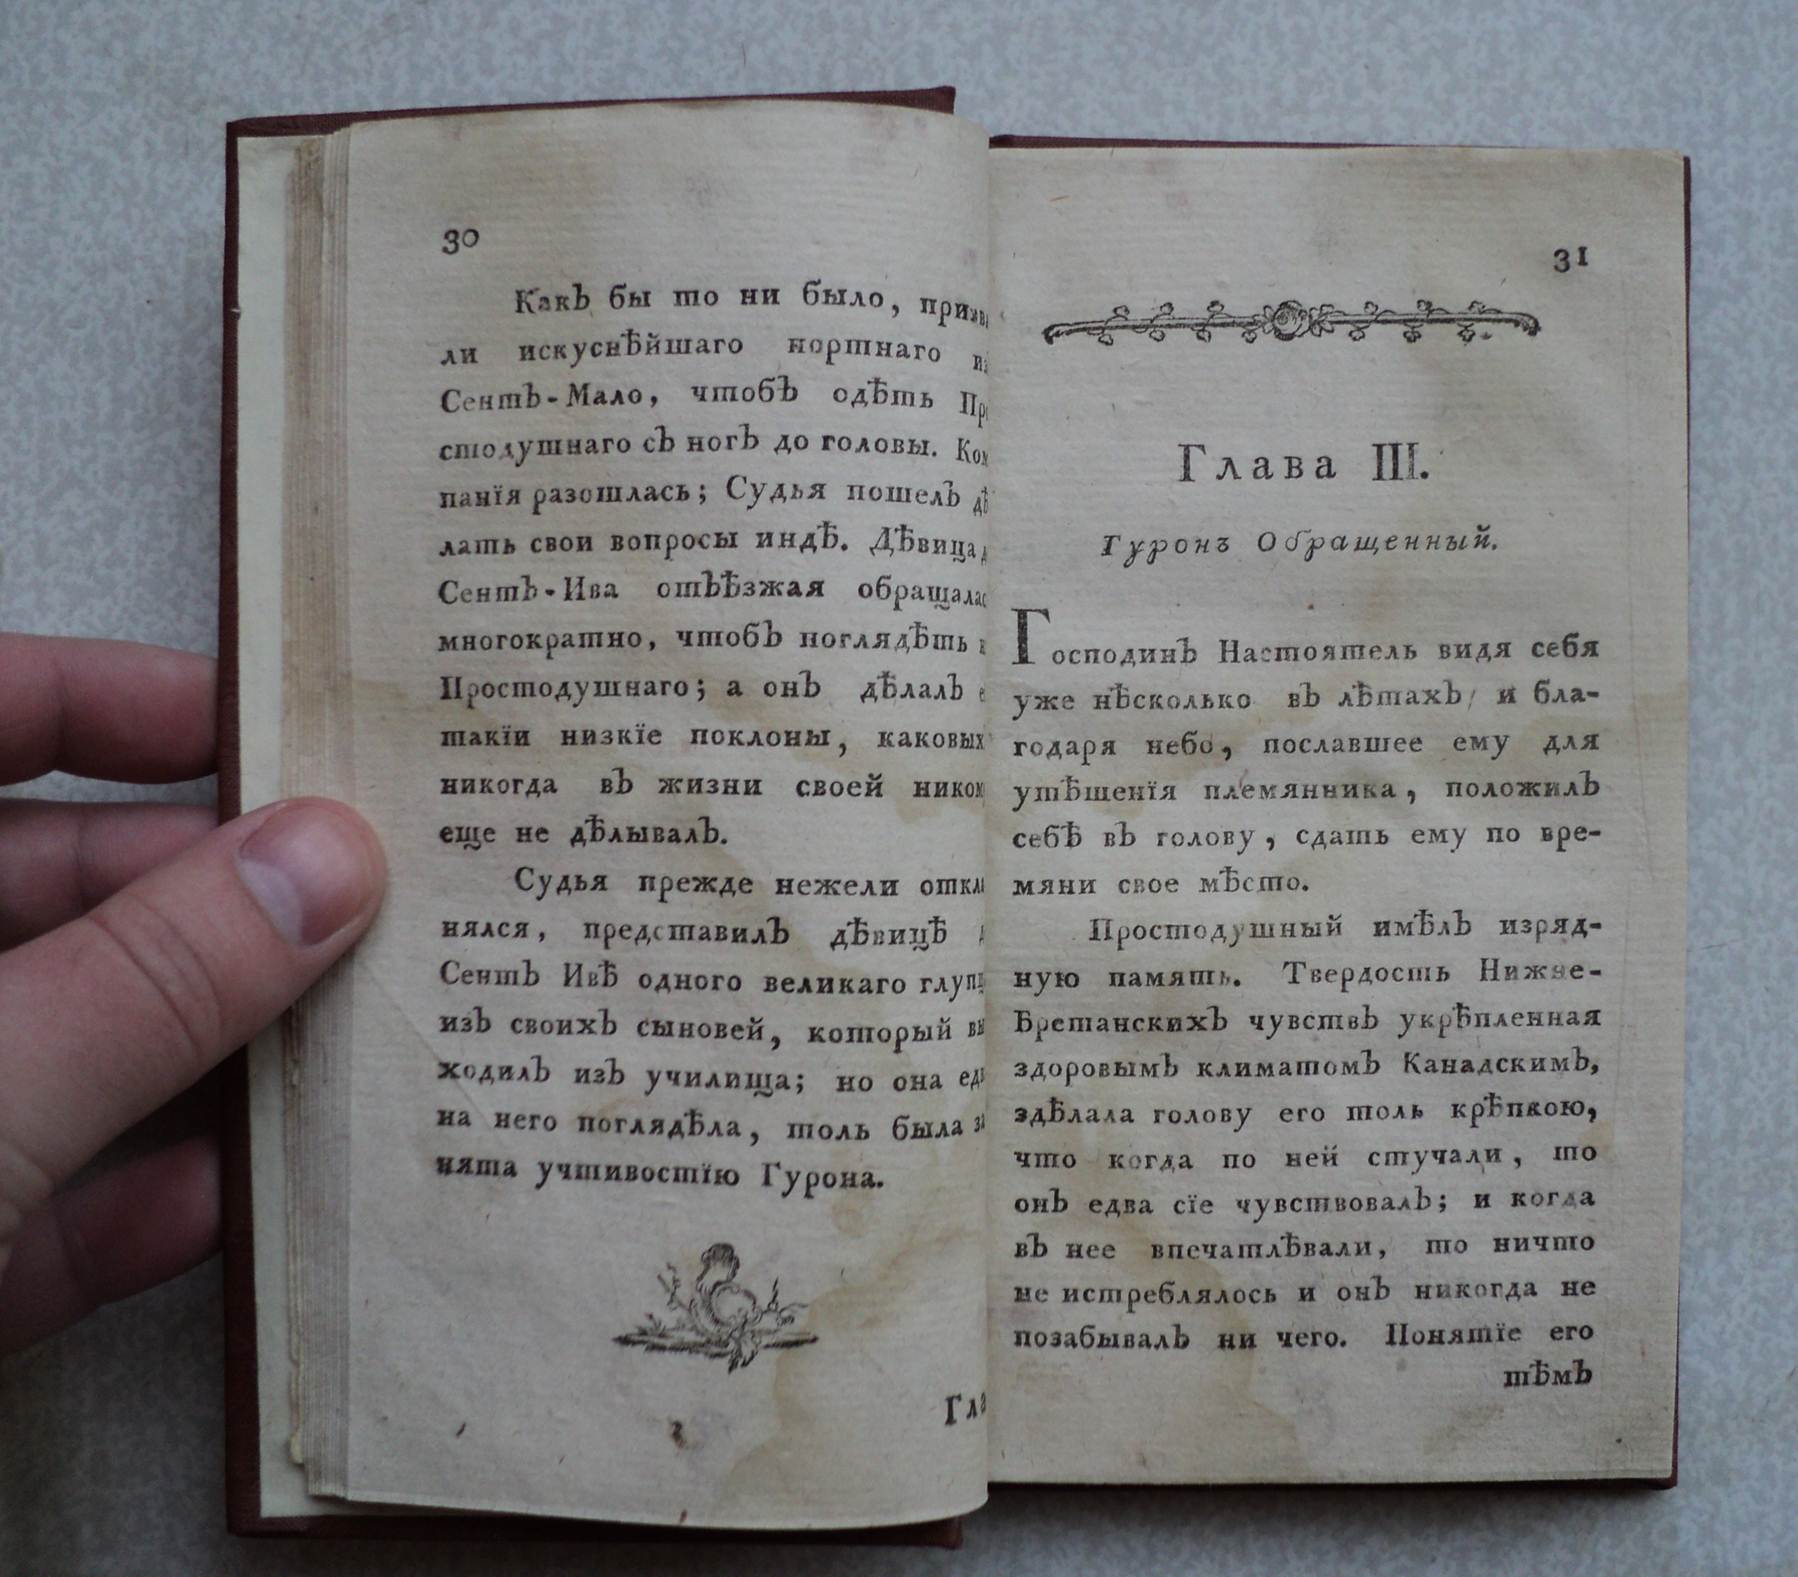 30
Какъ бы то ни было,
ли искуснѣйшаго портнаго
Сентъ-Мало, чтобъ одѣть
стодушнаго съ ногъ до головы.
панїя разошлась; Судья пошелъ дѣ
лать свои вопросы индѣ. Дѣвица
Сентъ-Ива отъѣзжая обращалас
многократно, чтобъ поглядѣть
Простодушнаго; а онъ дѣлалъ
такїи низкїе поклоны, каковых
никогда въ жизни своей
еще не дѣлывалъ.
Судья прежде нежели откла
нялся, представилъ дѣвицѣ
Сентъ Ивѣ одного великаго
изъ своихъ сыновей, который вы
ходилъ изъ училища; но она
на него поглядѣла, толь была за
нята учтивостїю Гурона.
Гла
31
Глава III.
Гуронъ Обращенный.
Господинъ Настоятель видя себя
уже нѣсколько въ лѣтахъ, и бла-
годаря небо, пославшее ему для
утѣшенїя племянника, положилъ
себѣ въ голову, сдать ему по вре-
мяни свое мѣсто.
Простодушный имѣлъ изряд-
ную память. Твердость Нижне-
Бретанскихъ чувствъ укрѣпленная
здоровымъ климатомъ Канадскимъ,
здѣлала голову его толь крѣпкою,
что когда по ней стучали, то
онъ едва сїе чувствовалъ; и когда
въ нее впечатлѣвали, то ничто
не истреблялось и онъ никогда не
позабывалъ ни чего. Понятїе его
тѣмъ